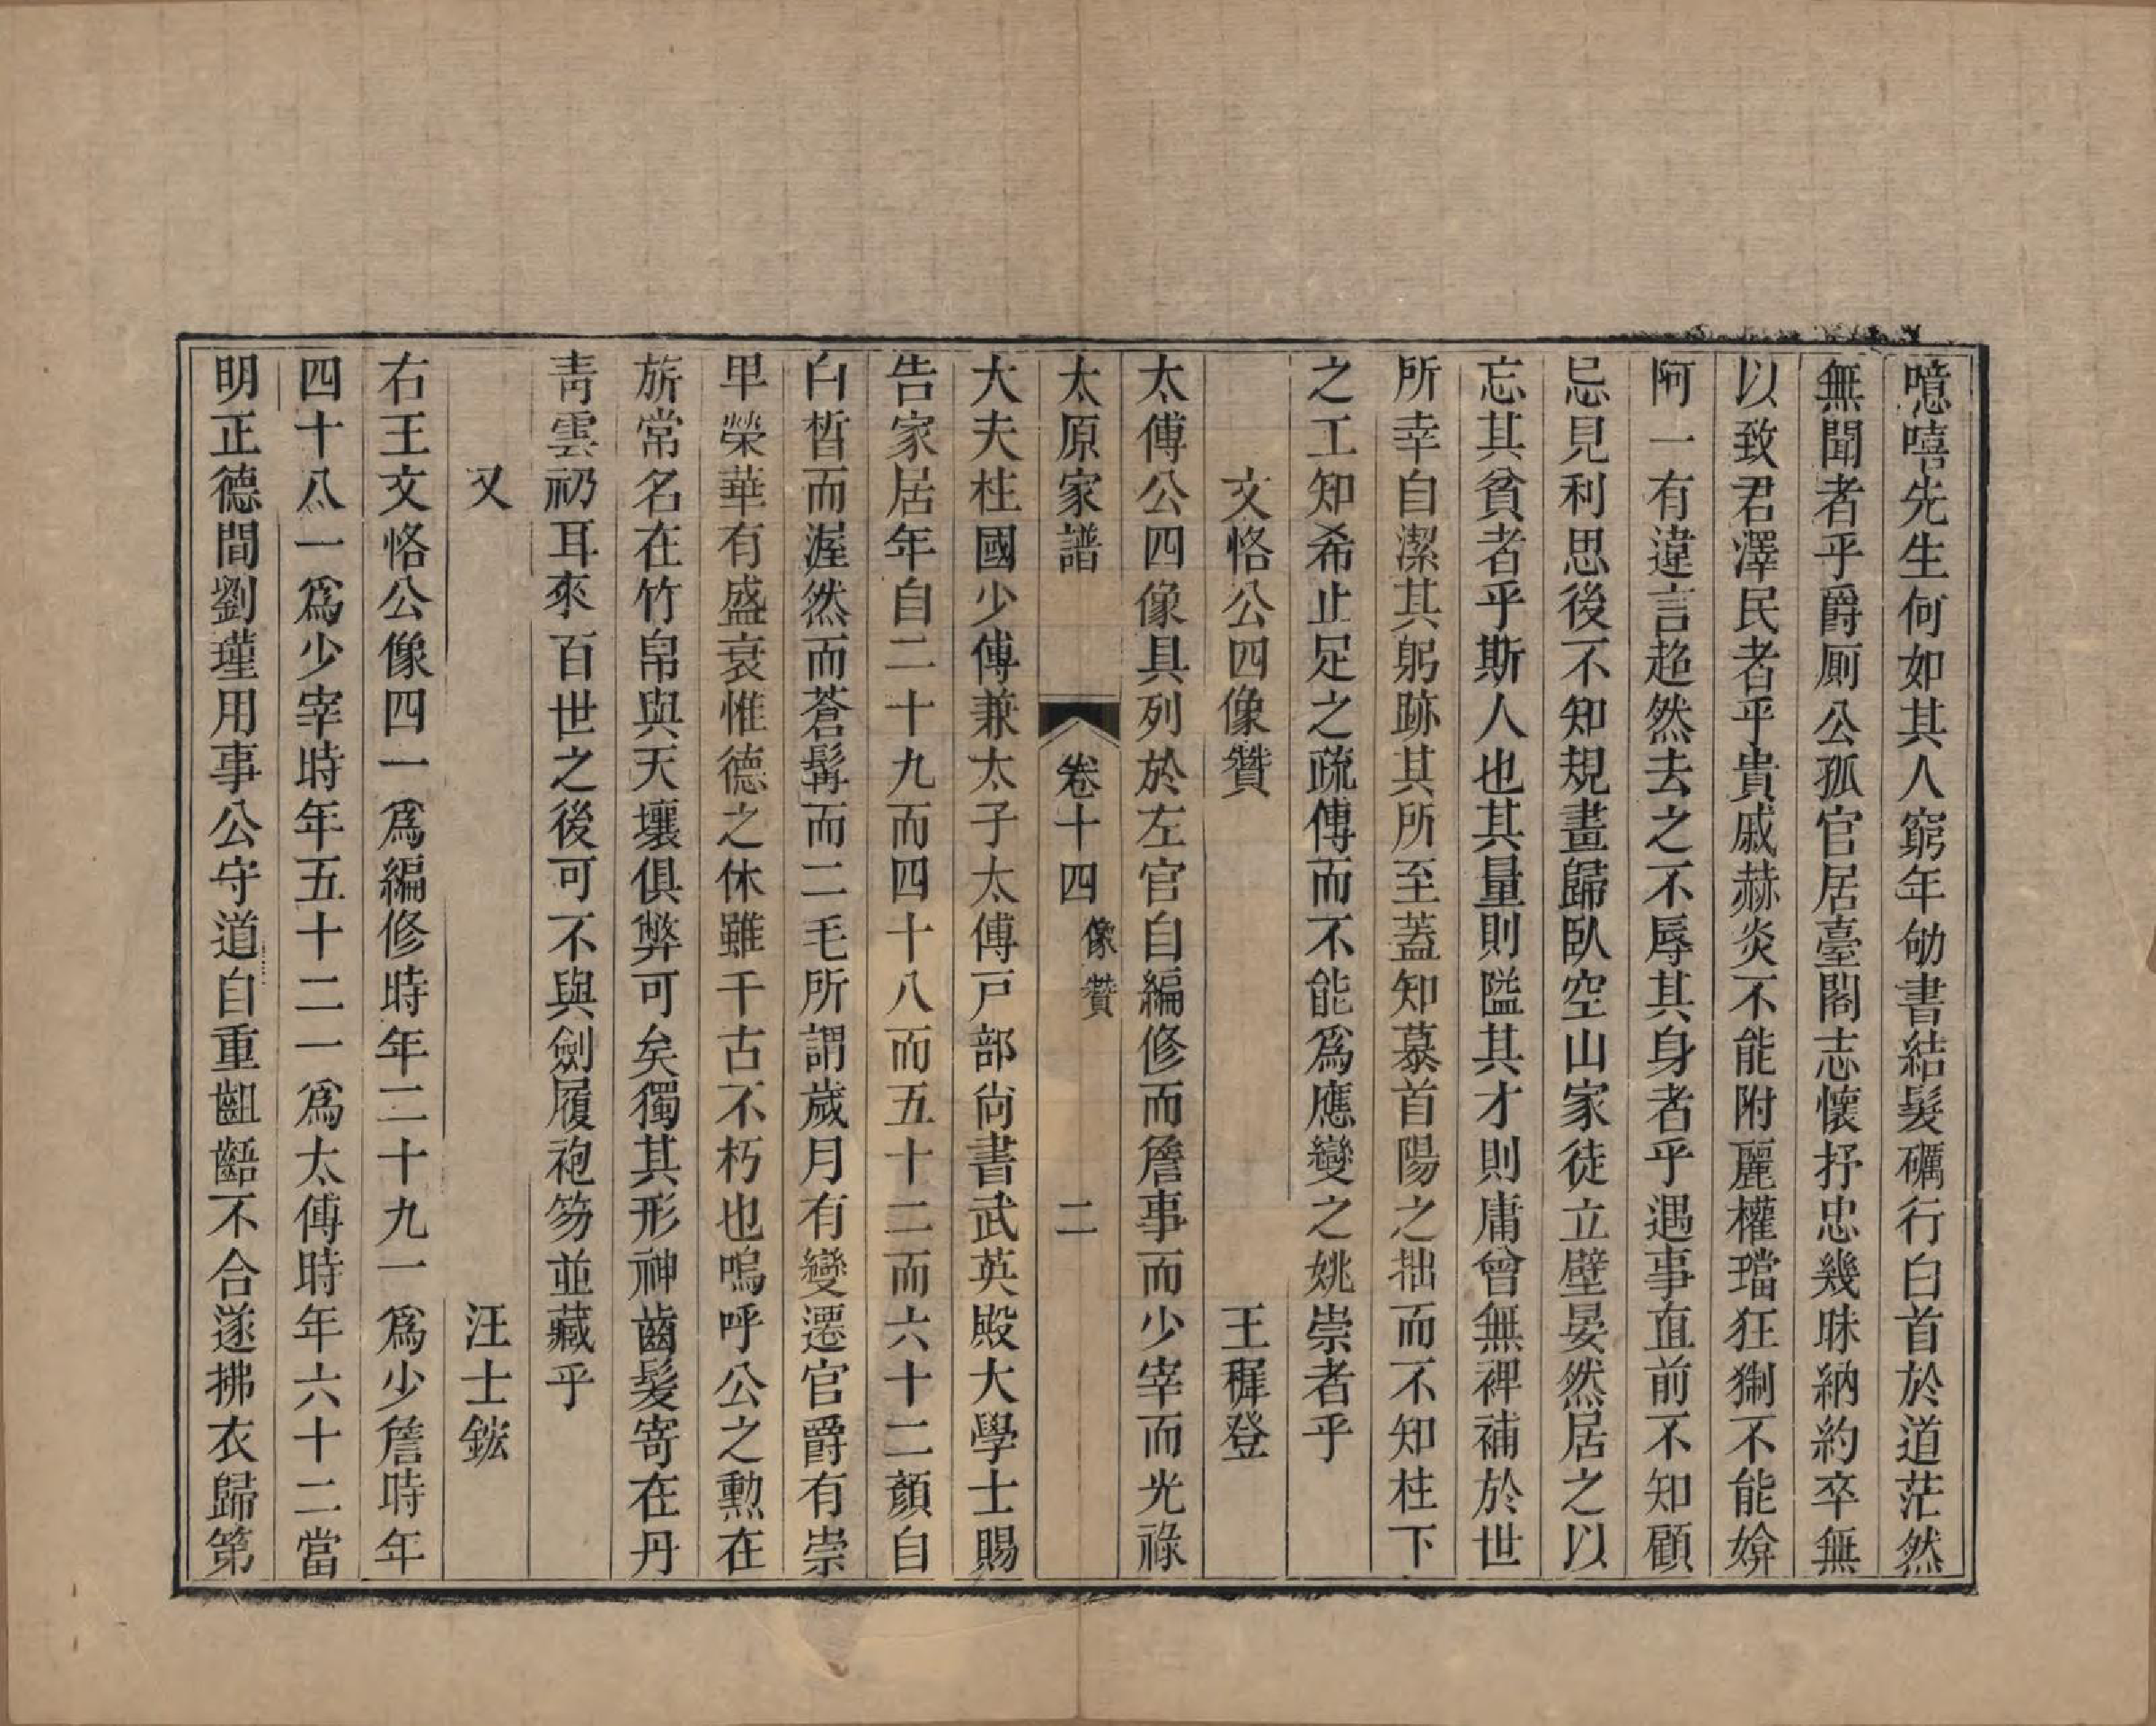 噫嘻先生何如其人窮年劬書結髮礪行白首於道茫然
無聞者乎爵厠公孤官居臺閣志懷抒忠幾昧納約卒無
以致君澤民者乎貴戚赫炎不能附麗權璫狂猘不能媕
阿一有違言趋然去之不辱其身者乎遇事直前不知顧
忌見利思後不知規畫歸臥空山家徒立壁晏然居之以
忘其貧者乎斯人也其量則隘其才則庸曾無裨補於世
所幸自潔其躬跡其所至蓋知慕首陽之拙而不知柱下
之工知希止足之疏傳而不能爲應變之姚崇者乎
文恪公四像贊　王穉登
太傅公四像具列於左官自編修而詹事而少宰而光祿
太原家譜　卷十四　像贊　二
大夫柱國少傅兼太子太傅戸部尙書武英殿大學士賜
告家居年自二十九而四十八而五十二而六十二顏自
白晳而渥然而蒼髯而二毛所謂歲月有變遷官爵有崇
卑榮華有盛衰惟德之休雖千古不朽也嗚呼公之勳在
旂常名在竹帛與天壤俱弊可矣獨其形神齒髮寄在丹
靑雲礽耳來百世之後可不與劍履袍笏並藏乎
又　汪士鋐
右王文恪公像四一爲編修時年二十九一爲少詹時年
四十八一爲少宰時年五十二一爲太傅時年六十二當
明正德間劉瑾用事公守道自重齟齬不合遂拂衣歸第